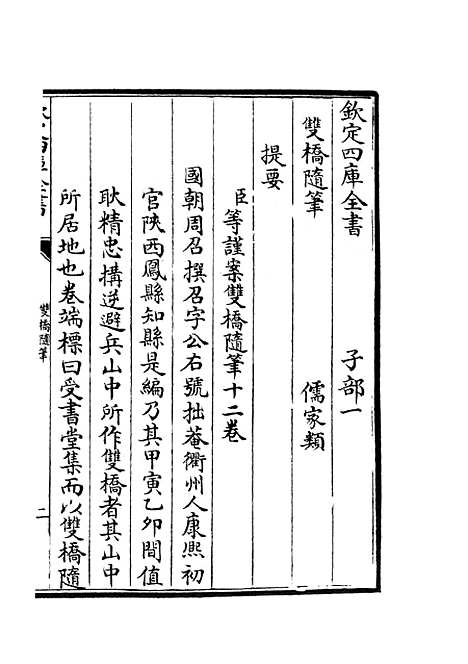 欽定四庫全書　子部一
雙橋隨筆　儒家類
提要
臣等謹案雙橋隨筆十二卷
國朝周召撰召字公右號拙菴衢州人康熙初
官陝西鳳縣知縣是編乃其甲寅乙卯間值
耿精忠搆逆避兵山中所作雙橋者其山中
所居地也卷端標曰受書堂集而以雙橋隨
雙橋隨筆